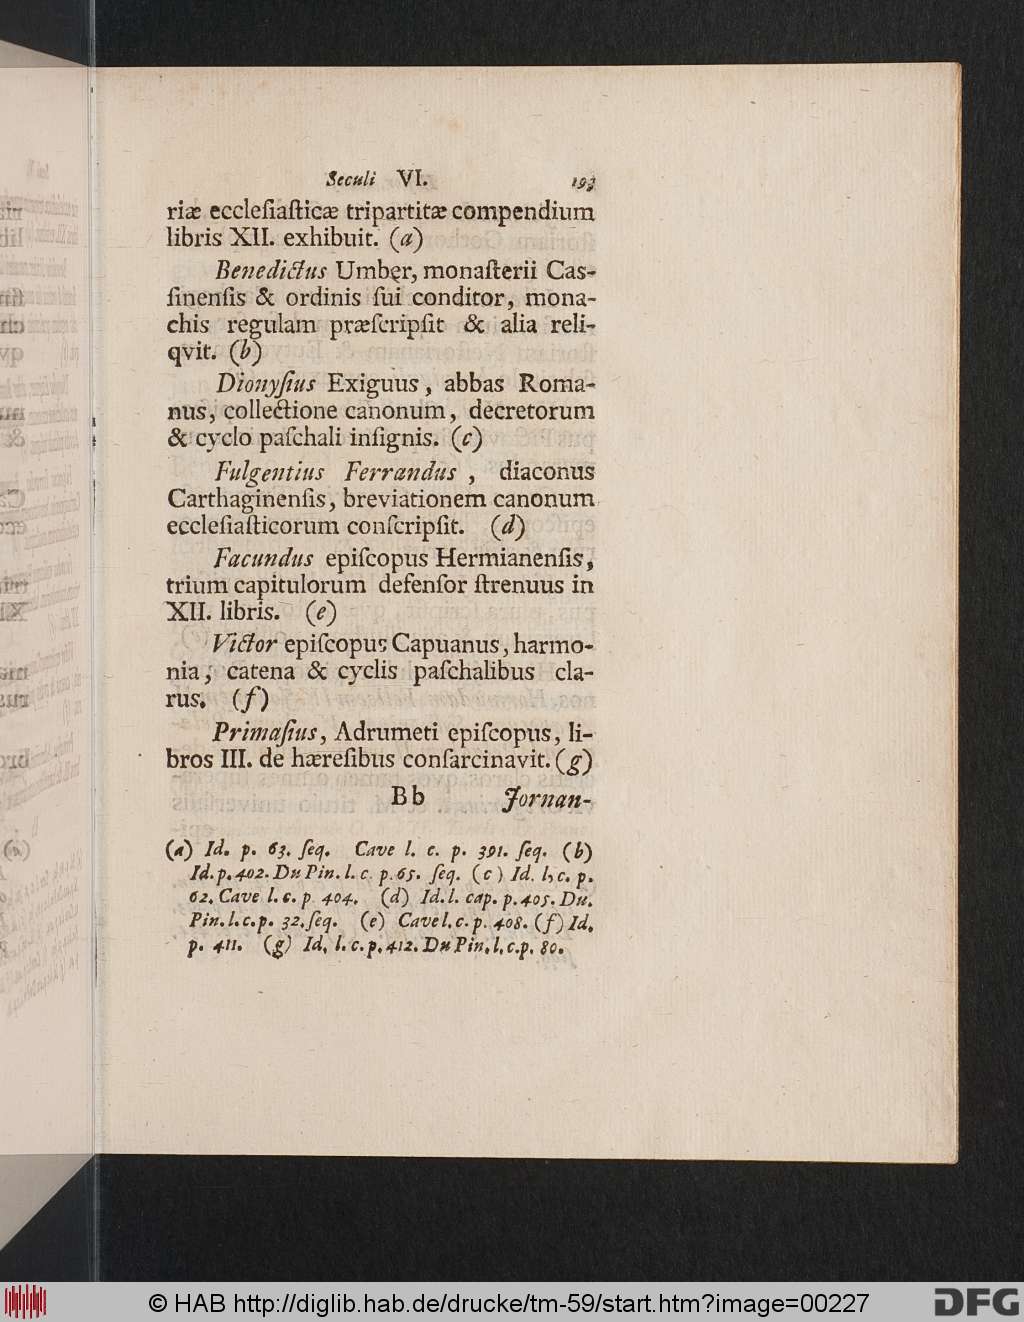 Seculi VI. 193
riæ eccleſiaſticæ tripartitæ compendium
libris XII. exhibuit. (a)
Benedictus Umber, monaſterii Caſ-
ſinenſis & ordinis ſui conditor, mona-
chis regulam præſcripſit & alia reli-
qvit. (b)
Dionyſius Exiguus, abbas Roma-
nus, collectione canonum, decretorum
& cyclo paſchali inſignis. (c)
Fulgentius Ferrandus, diaconus
Carthaginenſis, breviationem canonum
eccleſiaſticorum conſcripſit. (d)
Facundus epiſcopus Hermianenſis,
trium capitulorum defenſor ſtrenuus in
XII. libris. (e)
Victor epiſcopus Capuanus, harmo-
nia, catena & cyclis paſchalibus cla-
rus. (f)
Primaſius, Adrumeti epiſcopus, li-
bros III. de hæreſibus conſarcinavit. (g)
Bb Jornan-
(a) Id. p. 63. ſeq. Cave l. c. p. 391. ſeq. (b)
Id. p. 402. Du Pin. l. c. p. 65. ſeq. (c) Id. l, c. p.
62. Cave l. c. p. 404. (d) Id. l. cap. p. 405. Du.
Pin. l. c. p. 32. ſeq. (e) Cave l. c. p. 408. (f) Id,
p. 411. (g) Id, l. c. p. 412. Du Pin, l, c. p. 80.
© HAB http://diglib.hab.de/drucke/tm-59/start.htm?image=00227
DFG